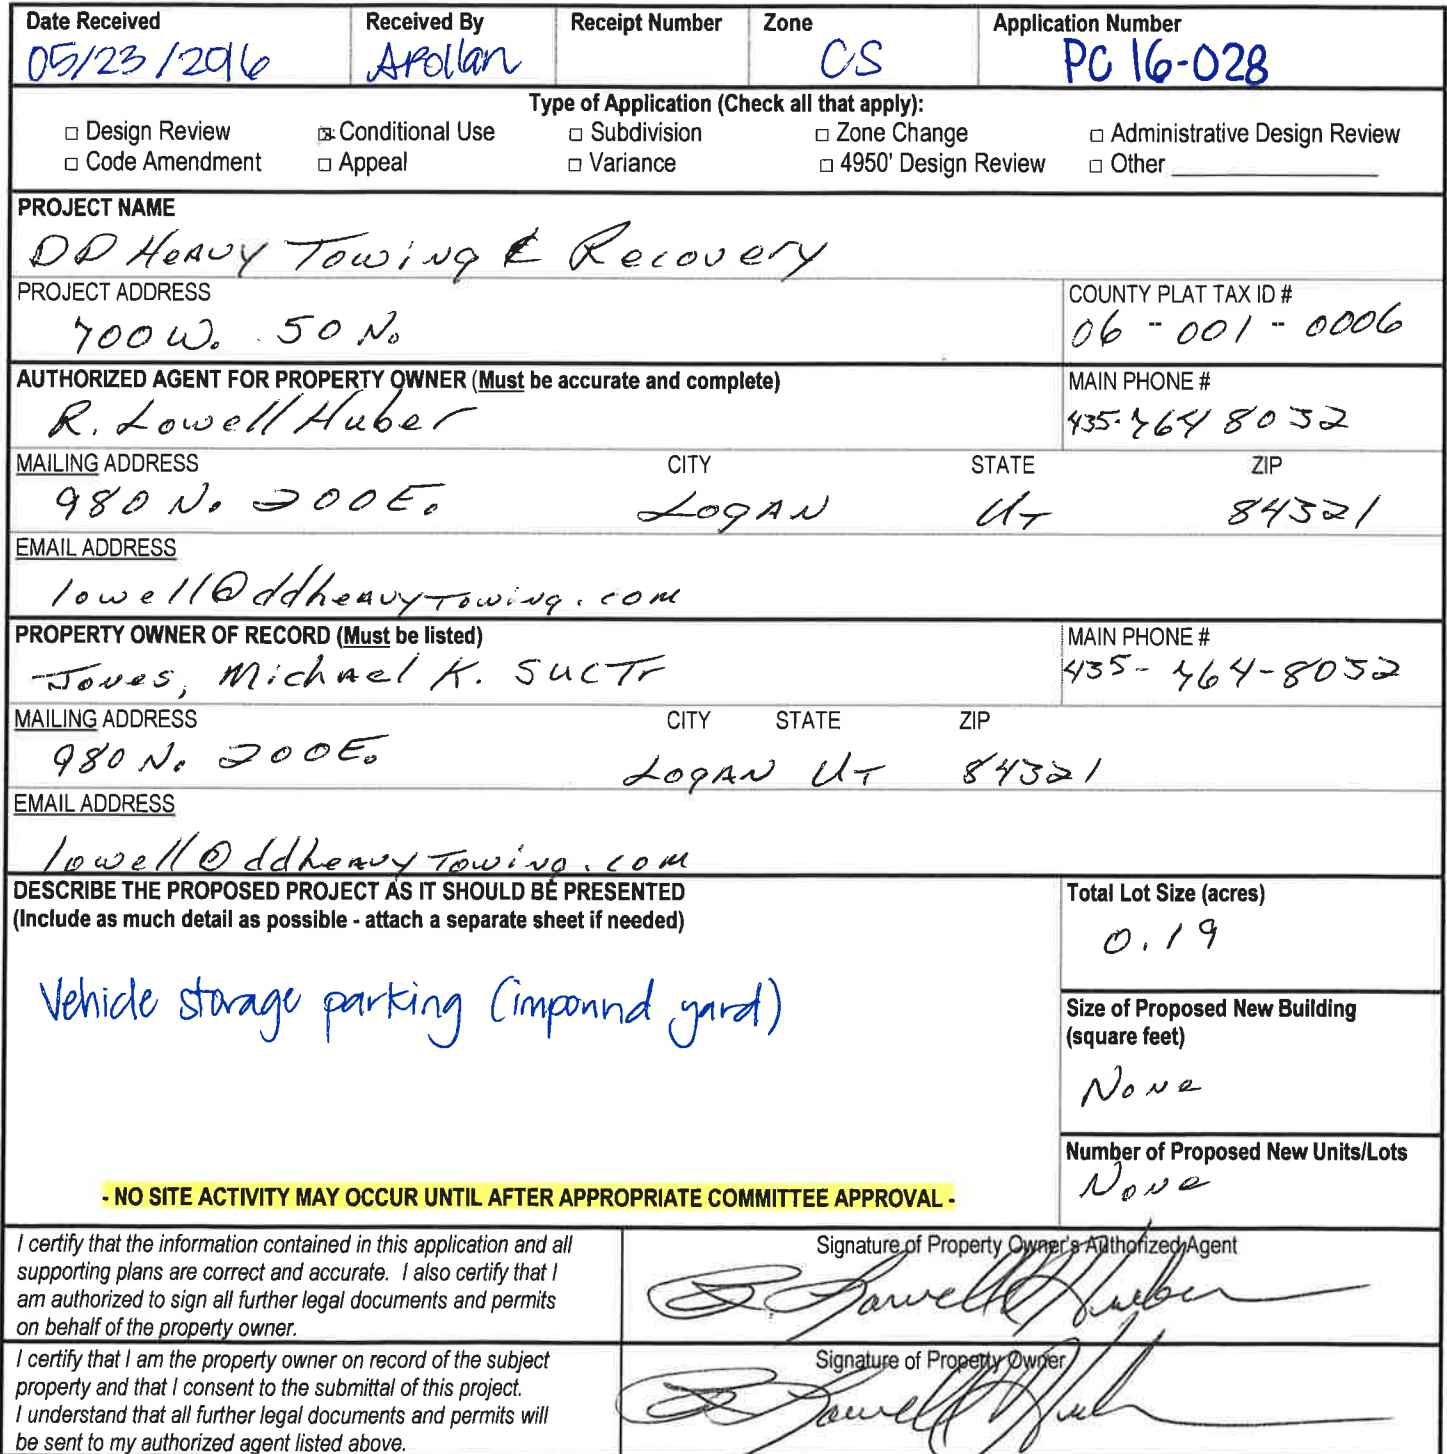 Date Received Received By Receipt Number Zone Application Number
05/23/2016 APollan CS PC 16-028
Type of Application (Check all that apply):
□ Design Review ☒ Conditional Use □ Subdivision □ Zone Change □ Administrative Design Review
□ Code Amendment □ Appeal □ Variance □ 4950' Design Review □ Other
PROJECT NAME
DD Heavy Towing & Recovery
PROJECT ADDRESS COUNTY PLAT TAX ID #
700 W. 50 N. 06-001-0006
AUTHORIZED AGENT FOR PROPERTY OWNER (Must be accurate and complete) MAIN PHONE #
R. Lowell Huber 435-764 8032
MAILING ADDRESS CITY STATE ZIP
980 N. 200 E. LOGAN UT 84321
EMAIL ADDRESS
lowell@ddheavytowing.com
PROPERTY OWNER OF RECORD (Must be listed) MAIN PHONE #
Jones, Michael K. SUCTr 435-764-8032
MAILING ADDRESS CITY STATE ZIP
980 N. 200 E. LOGAN UT 84321
EMAIL ADDRESS
lowell@ddheavytowing.com
DESCRIBE THE PROPOSED PROJECT AS IT SHOULD BE PRESENTED
(Include as much detail as possible - attach a separate sheet if needed)
Vehicle storage parking (impound yard)
Total Lot Size (acres)
0.19
Size of Proposed New Building
(square feet)
None
Number of Proposed New Units/Lots
None
- NO SITE ACTIVITY MAY OCCUR UNTIL AFTER APPROPRIATE COMMITTEE APPROVAL -
I certify that the information contained in this application and all
supporting plans are correct and accurate. I also certify that I
am authorized to sign all further legal documents and permits
on behalf of the property owner.
Signature of Property Owner's Authorized Agent
R. Lowell Huber
I certify that I am the property owner on record of the subject
property and that I consent to the submittal of this project.
I understand that all further legal documents and permits will
be sent to my authorized agent listed above.
Signature of Property Owner
R. Lowell Huber